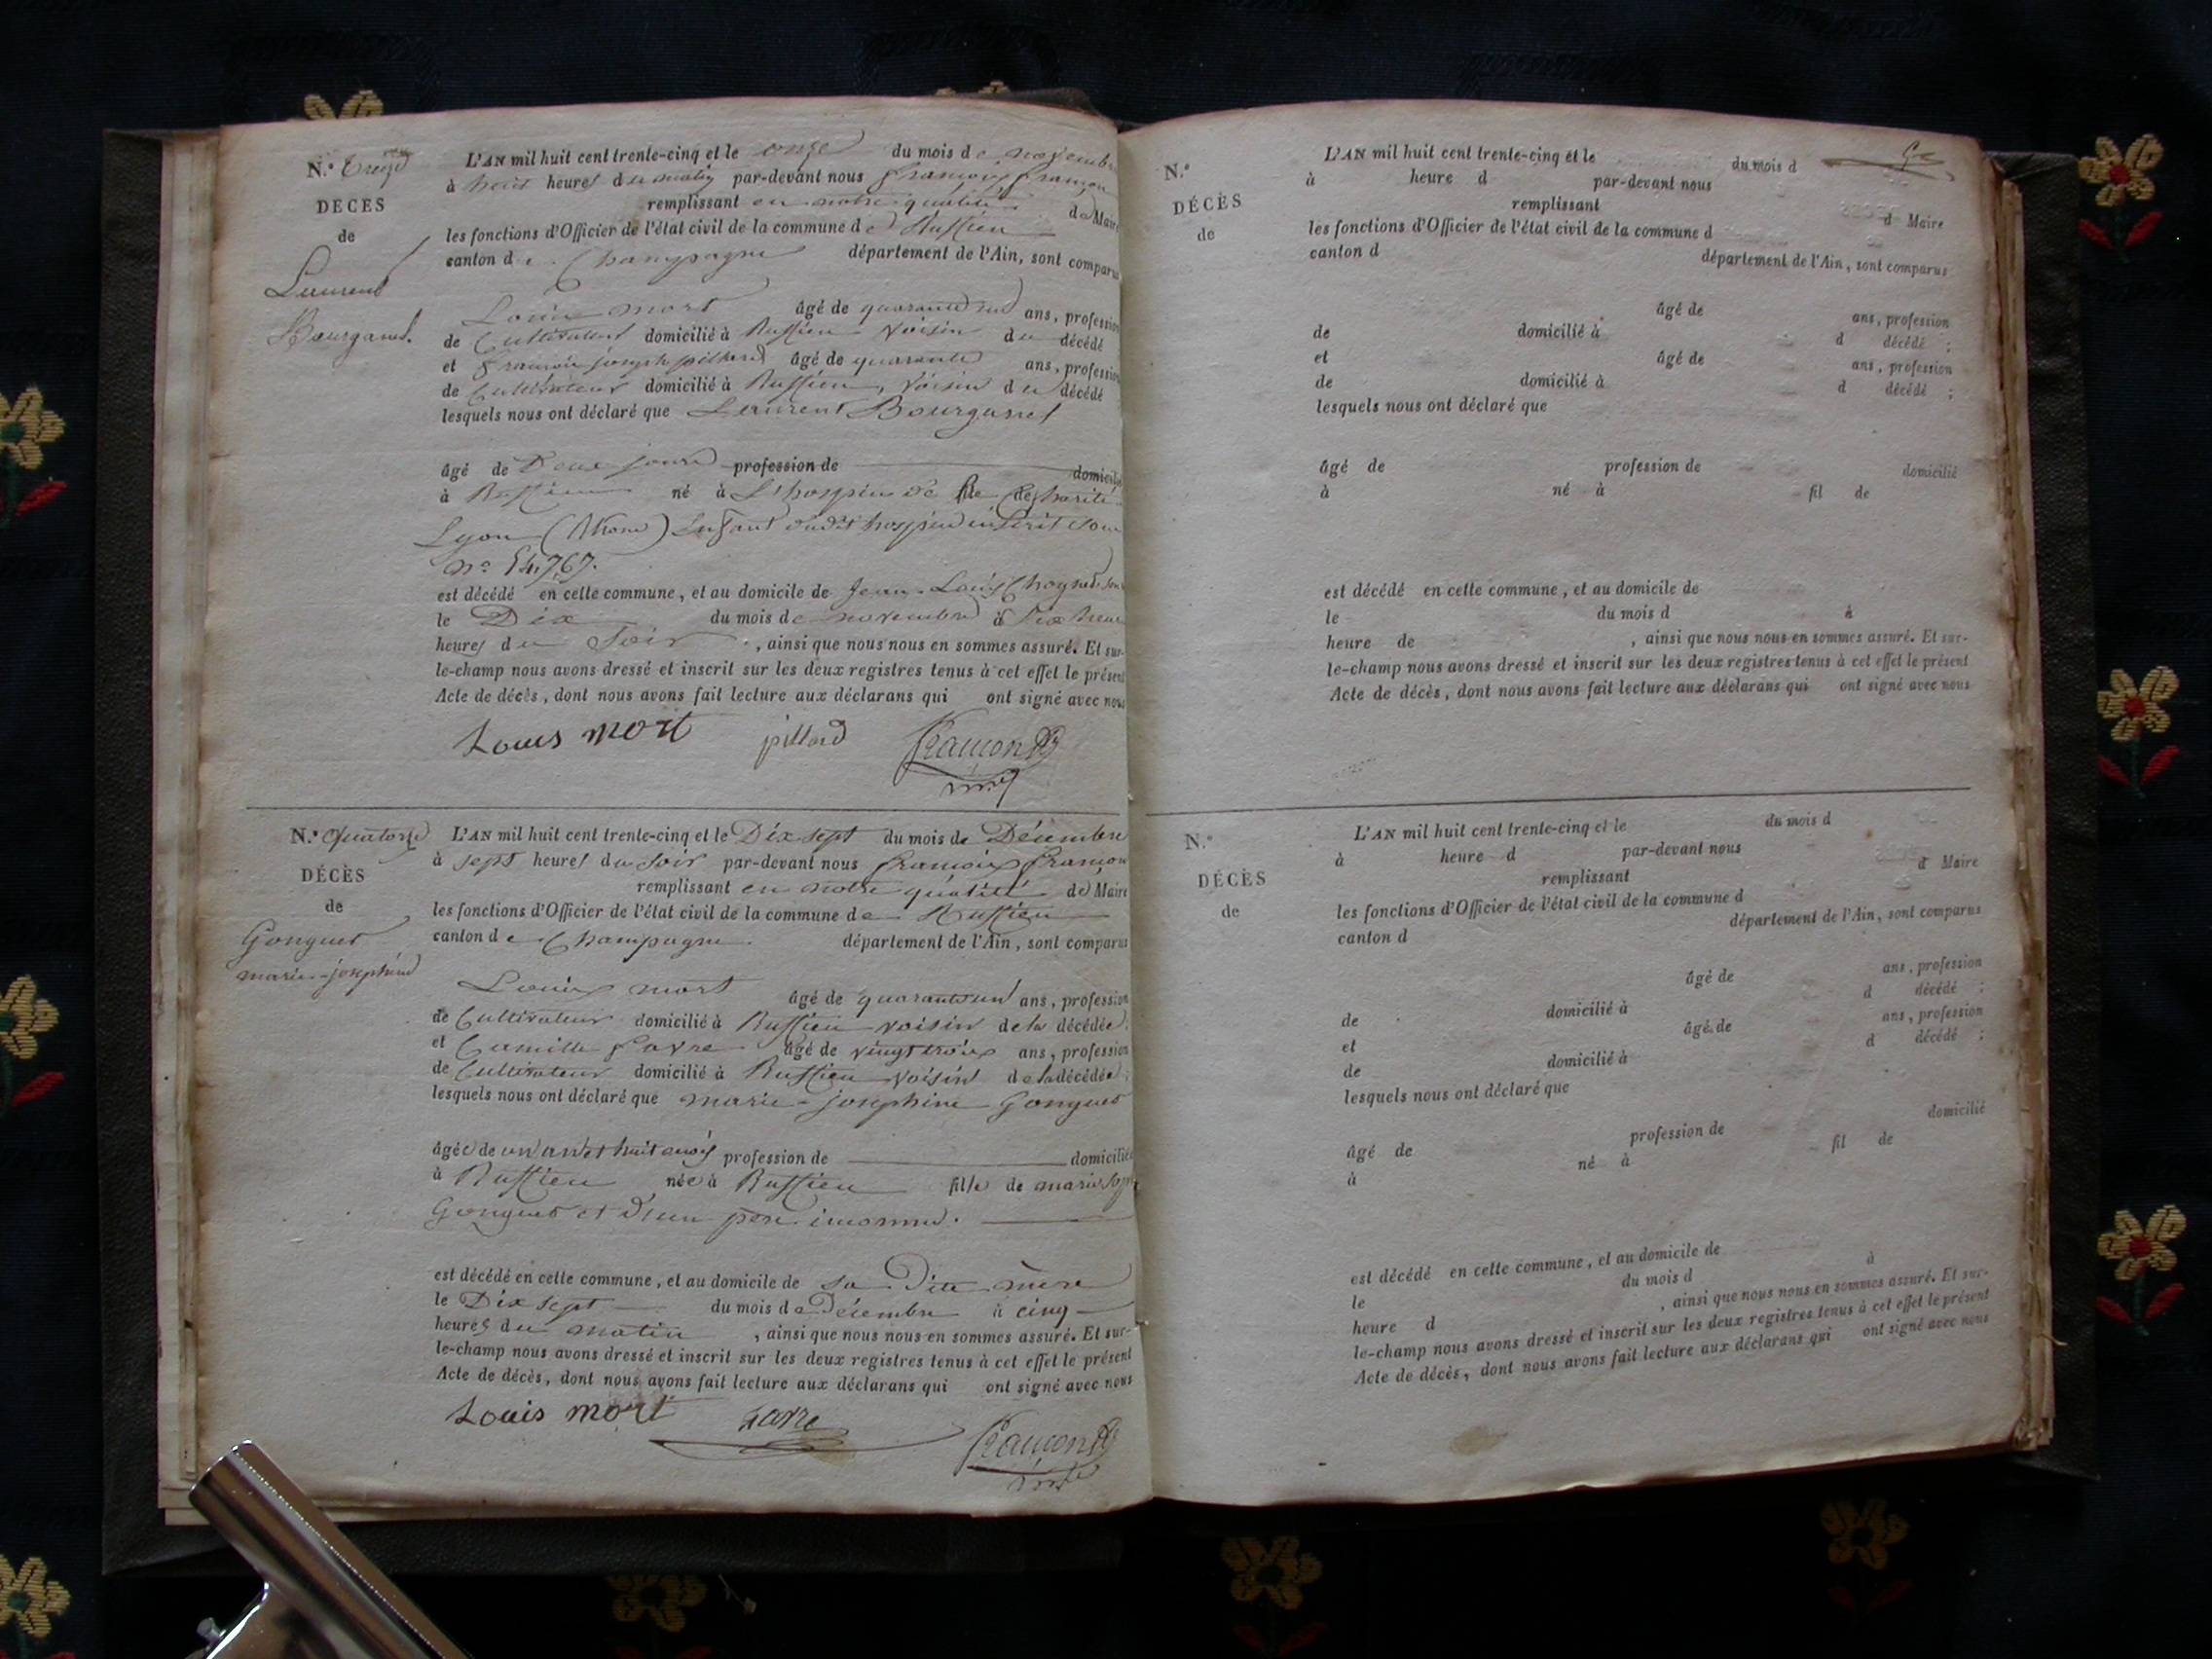 N.º Treize
DÉCÈS
de
Laurent
Bourganel.
L'AN mil huit cent trente-cinq et le onze du mois de novembre
à huit heures du matin par-devant nous françois françon
remplissant en notre qualité de Maire
les fonctions d'Officier de l'état civil de la commune de Ruffieu
canton de Champagne département de l'Ain, sont comparus
Louis mort âgé de quarante un ans, profession
de Cultivateur domicilié à Ruffieu voisin du décédé
et françois joseph pillard âgé de quarante ans, profession
de Cultivateur domicilié à Ruffieu, voisin du décédé
lesquels nous ont déclaré que Laurent Bourganel
âgé de Deux jours profession de domicilié
à Ruffieu né à L'hospice de la Charité
Lyon (Rhone) Enfant dudit hospice inscrit sous
nº 54,767.
est décédé en cette commune, et au domicile de Jean-Louis
le Dix du mois de novembre à
heures du Soir, ainsi que nous nous en sommes assuré. Et sur-
le-champ nous avons dressé et inscrit sur les deux registres tenus à cet effet le présent
Acte de décès, dont nous avons fait lecture aux déclarans qui ont signé avec nous
Louis mort pillard françon
N.º quatorze
DÉCÈS
de
Gonguet
marie-josephine
L'AN mil huit cent trente-cinq et le Dix sept du mois de Décembre
à sept heures du soir par-devant nous françois françon
remplissant en notre qualité de Maire
les fonctions d'Officier de l'état civil de la commune de Ruffieu
canton de Champagne département de l'Ain, sont comparus
Louis mort âgé de quarante un ans, profession
de Cultivateur domicilié à Ruffieu voisin de la décédée;
et Camille favre âgé de vingt trois ans, profession
de Cultivateur domicilié à Ruffieu voisin de la décédée;
lesquels nous ont déclaré que marie-josephine Gonguet
âgée de un an et huit mois profession de domiciliée
à Ruffieu née à Ruffieu fille de marie
Gonguet et d'un père inconnu.
est décédé en cette commune, et au domicile de sa Dite mère
le Dix sept du mois de Décembre à cinq
heures du matin, ainsi que nous nous en sommes assuré. Et sur-
le-champ nous avons dressé et inscrit sur les deux registres tenus à cet effet le présent
Acte de décès, dont nous avons fait lecture aux déclarans qui ont signé avec nous
Louis mort favre françon
N.º
DÉCÈS
de
L'AN mil huit cent trente-cinq et le du mois d
à heure d par-devant nous
remplissant d Maire
les fonctions d'Officier de l'état civil de la commune d
canton d département de l'Ain, sont comparus
âgé de ans, profession
de domicilié à d décédé;
et âgé de ans, profession
de domicilié à d décédé;
lesquels nous ont déclaré que
âgé de profession de domicilié
à né à fil de
est décédé en cette commune, et au domicile de
le du mois d à
heure de, ainsi que nous nous en sommes assuré. Et sur-
le-champ nous avons dressé et inscrit sur les deux registres tenus à cet effet le présent
Acte de décès, dont nous avons fait lecture aux déclarans qui ont signé avec nous
N.º
DÉCÈS
de
L'AN mil huit cent trente-cinq et le du mois d
à heure d par-devant nous
remplissant d Maire
les fonctions d'Officier de l'état civil de la commune d
canton d département de l'Ain, sont comparus
âgé de ans, profession
de domicilié à d décédé;
et âgé de ans, profession
de domicilié à d décédé;
lesquels nous ont déclaré que
âgé de profession de domicilié
à né à fil de
est décédé en cette commune, et au domicile de
le du mois d à
heure d, ainsi que nous nous en sommes assuré. Et sur-
le-champ nous avons dressé et inscrit sur les deux registres tenus à cet effet le présent
Acte de décès, dont nous avons fait lecture aux déclarans qui ont signé avec nous